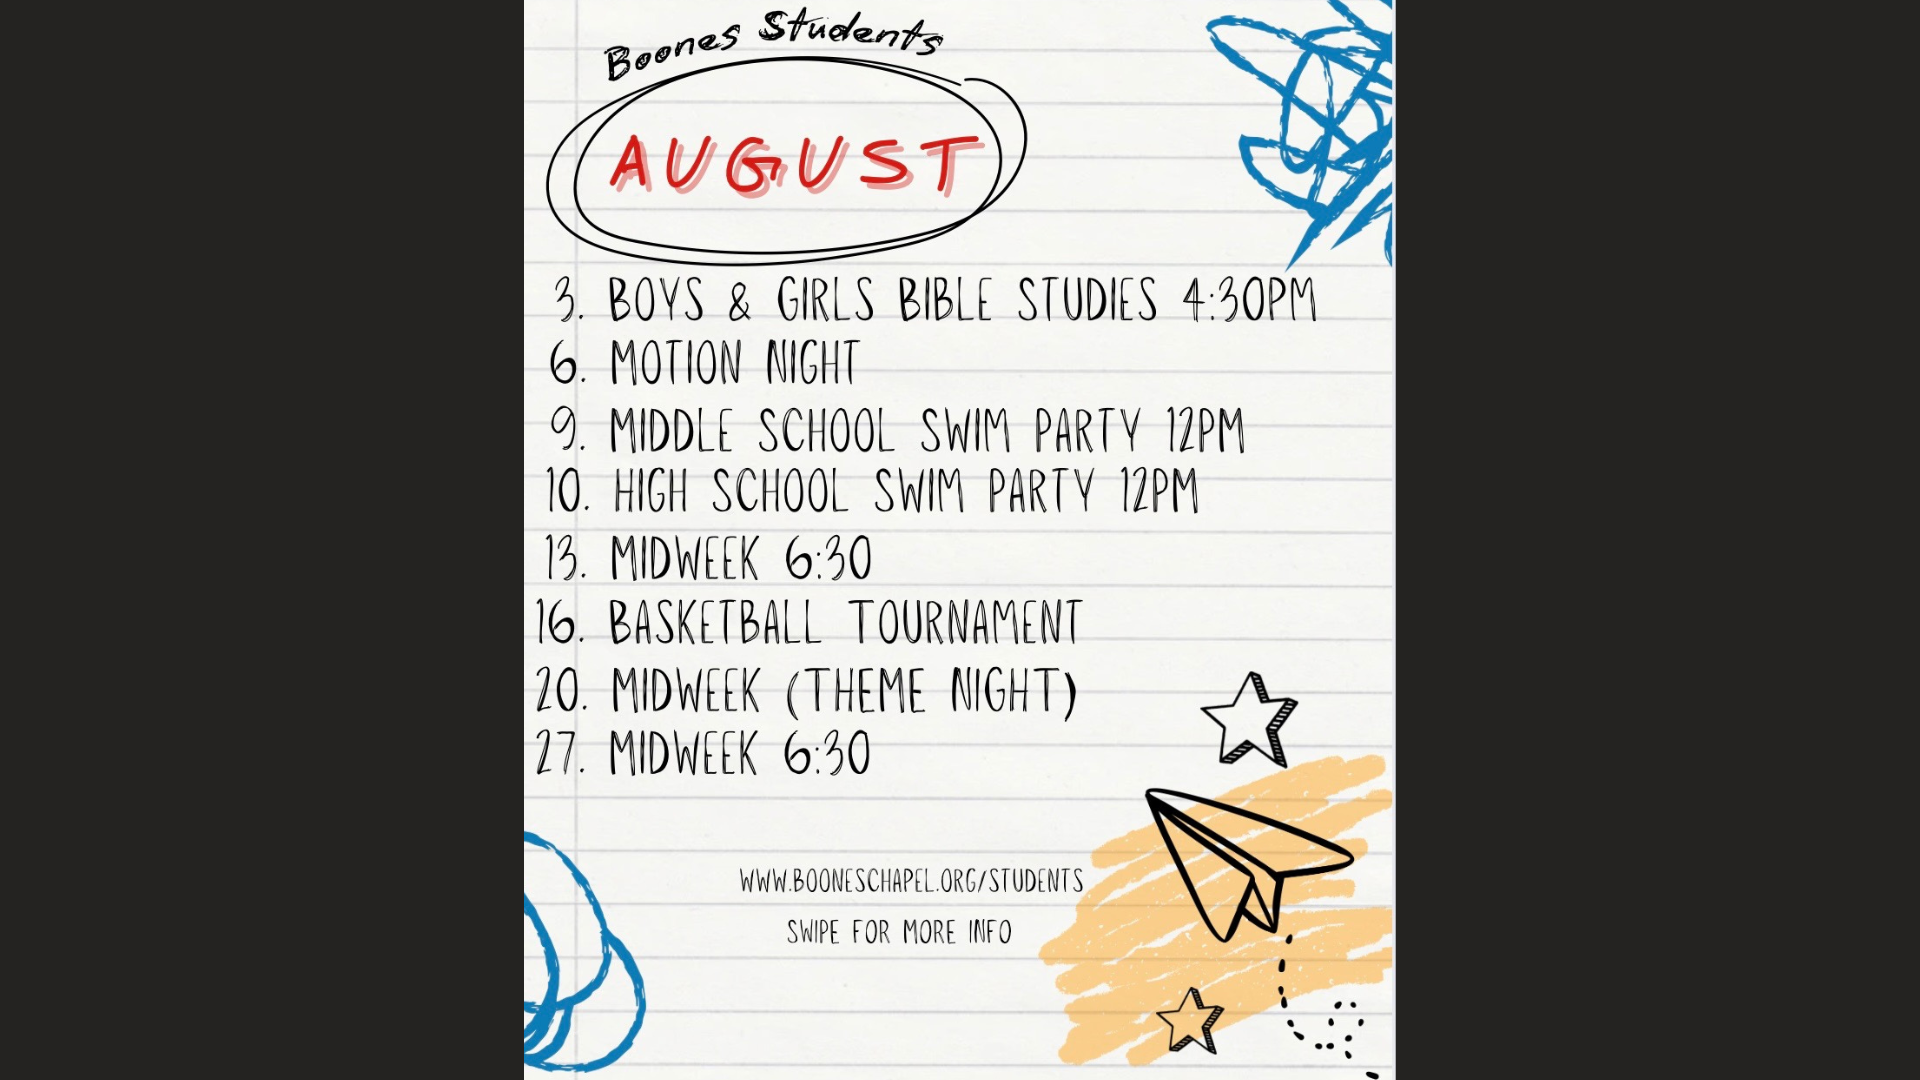 Boones Students
AUGUST
3. BOYS & GIRLS BIBLE STUDIES 4:30PM
6. MOTION NIGHT
9. MIDDLE SCHOOL SWIM PARTY 12PM
10. HIGH SCHOOL SWIM PARTY 12PM
13. MIDWEEK 6:30
16. BASKETBALL TOURNAMENT
20. MIDWEEK (THEME NIGHT)
27. MIDWEEK 6:30
WWW.BOONESCHAPEL.ORG/STUDENTS
SWIPE FOR MORE INFO